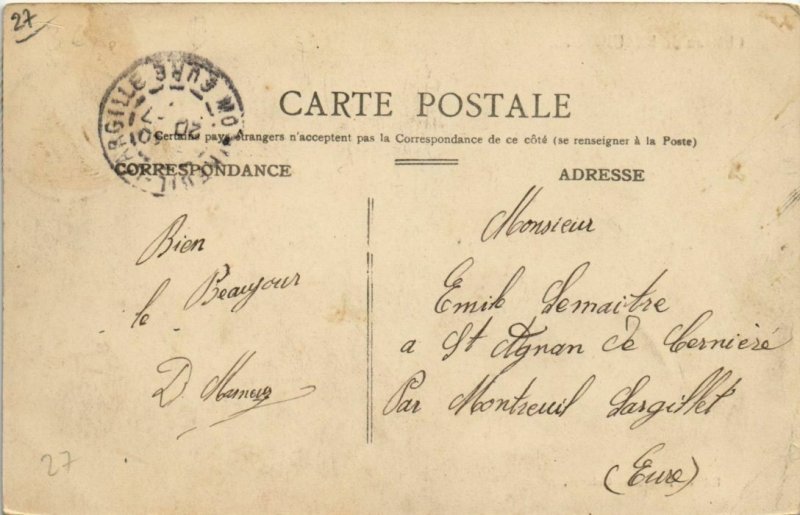 27
MONTREUIL-L'ARGILLÉ EURE
20
CARTE POSTALE
Certains pays étrangers n'acceptent pas la Correspondance de ce côté (se renseigner à la Poste)
CORRESPONDANCE
ADRESSE
Bien
le Beaujour
D.
Monsieur
Emile Lemaitre
a St Agnan de Cernieré
Par Montreuil Largillet
(Eure)
27